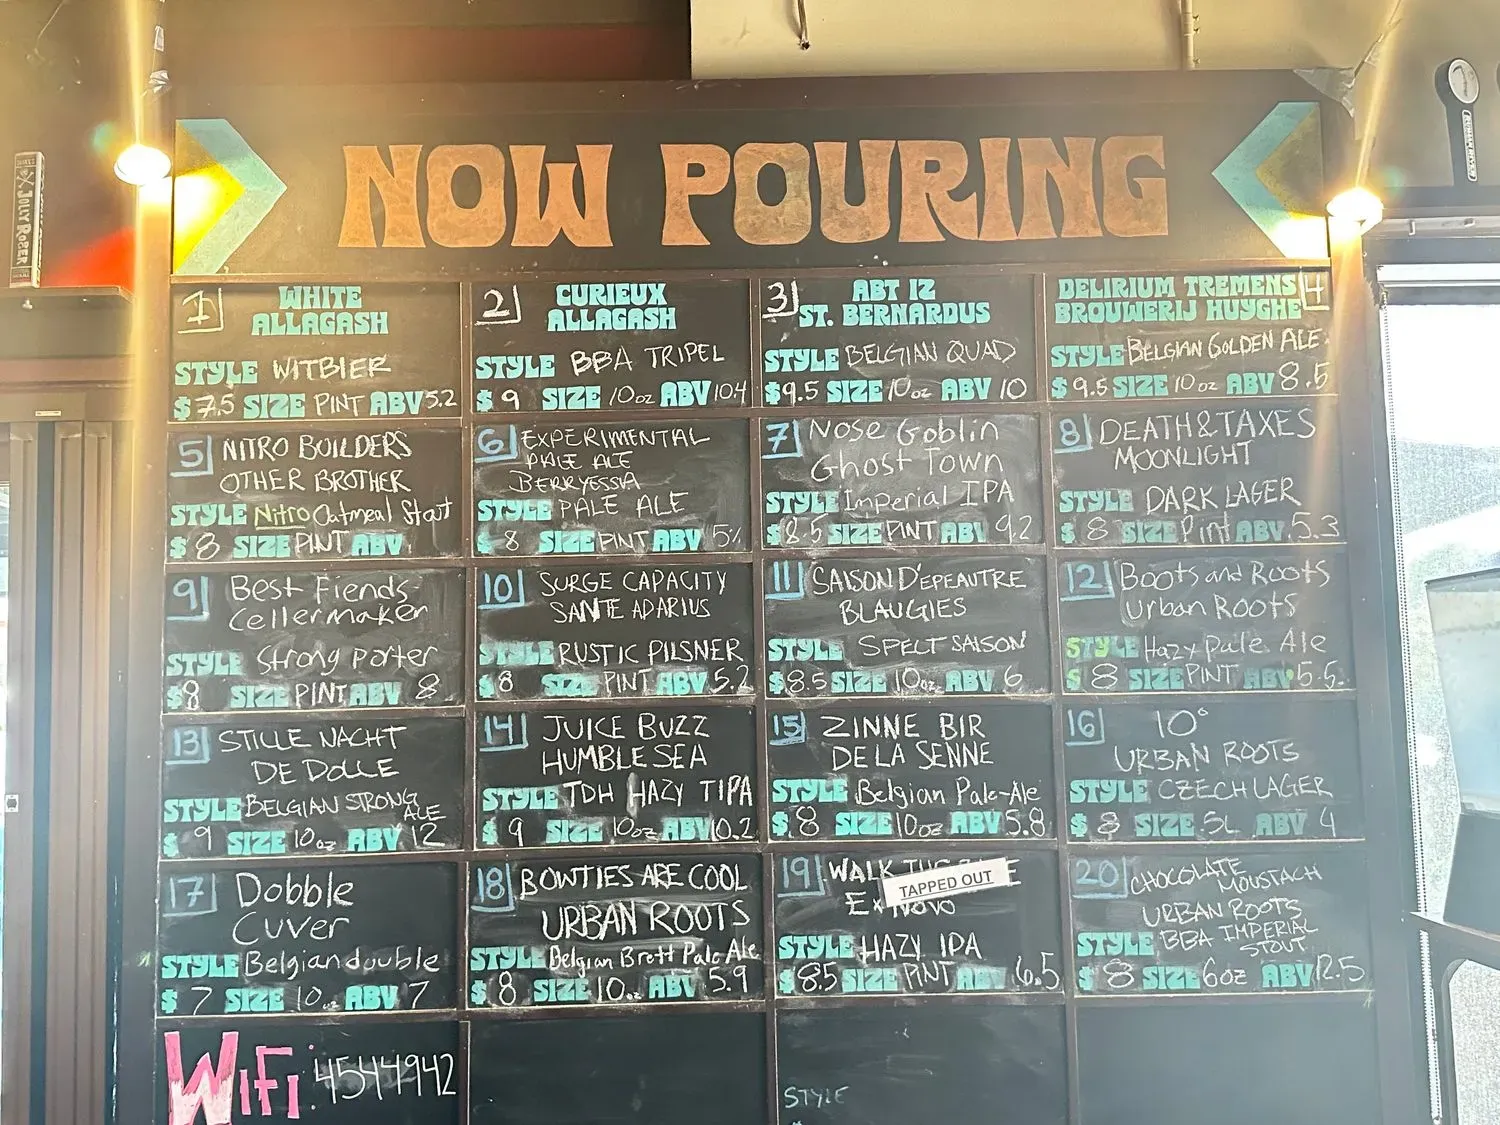 JOLLY ROGER
NOW POURING
1 WHITE
ALLAGASH
STYLE WITBIER
$7.5 SIZE PINT ABV 5.2
2 CURIEUX
ALLAGASH
STYLE BBA TRIPEL
$9 SIZE 10oz ABV 10.4
3 ABT 12
ST. BERNARDUS
STYLE BELGIAN QUAD
$9.5 SIZE 10oz ABV 10
DELIRIUM TREMENS 4
BROUWERIJ HUYGHE
STYLE BELGIAN GOLDEN ALE
$9.5 SIZE 10oz ABV 8.5
5 NITRO BUILDERS
OTHER BROTHER
STYLE Nitro Oatmeal Stout
$8 SIZE PINT ABV
6 EXPERIMENTAL
PALE ALE
BERRYESSIA
STYLE PALE ALE
$8 SIZE PINT ABV 5%
7 Nose Goblin
Ghost Town
STYLE Imperial IPA
$8.5 SIZE PINT ABV 9.2
8 DEATH & TAXES
MOONLIGHT
STYLE DARK LAGER
$8 SIZE Pint ABV 5.3
9 Best Fiends-
Cellermaker
STYLE Strong porter
$8 SIZE PINT ABV 8
10 SURGE CAPACITY
SANTE ADARIUS
STYLE RUSTIC PILSNER
$8 SIZE PINT ABV 5.2
11 SAISON D'EPEAUTRE
BLAUGIES
STYLE SPELT SAISON
$8.5 SIZE 10oz ABV 6
12 Boots and Roots
Urban Roots
STYLE Hazy Pale Ale
$8 SIZE PINT ABV 5.5
13 STILLE NACHT
DE DOLLE
STYLE BELGIAN STRONG
ALE
$9 SIZE 10oz ABV 12
14 JUICE BUZZ
HUMBLE SEA
STYLE TDH HAZY TIPA
$9 SIZE 10oz ABV 10.2
15 ZINNE BIR
DE LA SENNE
STYLE Belgian Pale-Ale
$8 SIZE 10oz ABV 5.8
16 10°
URBAN ROOTS
STYLE CZECH LAGER
$8 SIZE .5L ABV 4
17 Dobble
Cuver
STYLE Belgian double
$7 SIZE 10oz ABV 7
18 BOWTIES ARE COOL
URBAN ROOTS
STYLE Belgian Brett Pale Ale
$8 SIZE 10oz ABV 5.9
19 WALK
TAPPED OUT
Ex Novo
STYLE HAZY IPA
$8.5 SIZE PINT ABV 6.5
20 CHOCOLATE
MOUSTACH
URBAN ROOTS
STYLE BBA IMPERIAL
STOUT
$8 SIZE 6oz ABV 12.5
WiFi: 4544942
STYLE